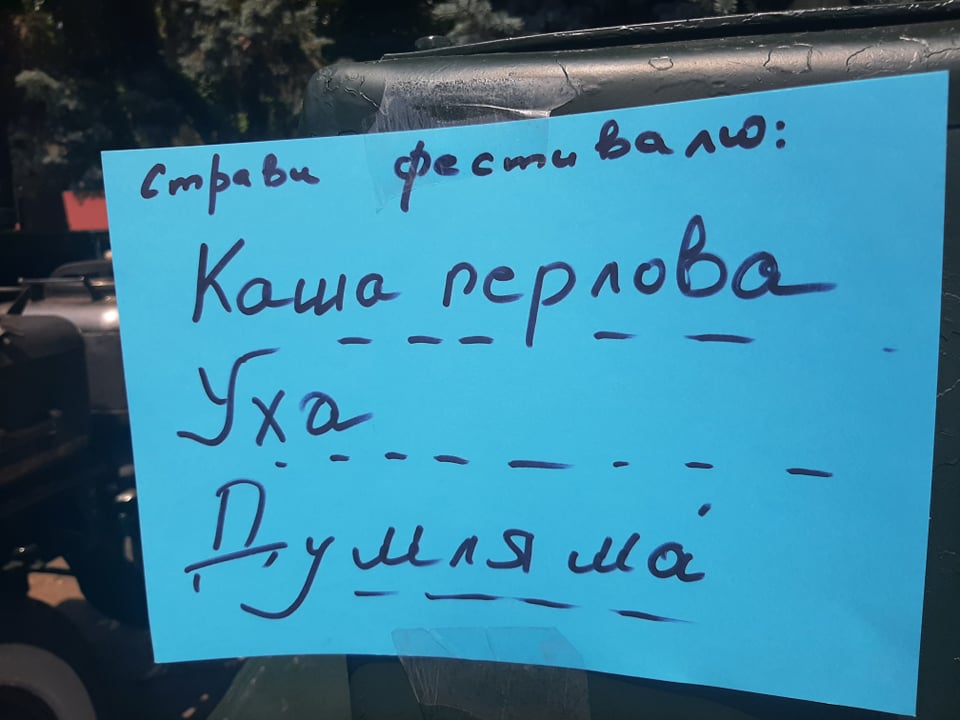 Страви фестивалю:
Каша перлова
Уха
Думляма́